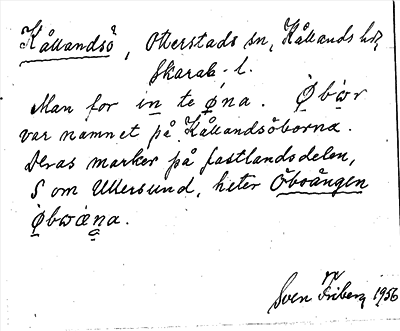 Kållandsö, Otterstads sn, Kållands hd,
Skarab. l.
Man for in te øna. Øbẅr
var namnet på Kållandsöborna.
Deras marker på fastlandsdelen,
S om Ullersund, heter Öboängen
Øbwæna.
Sven Friberg 1956